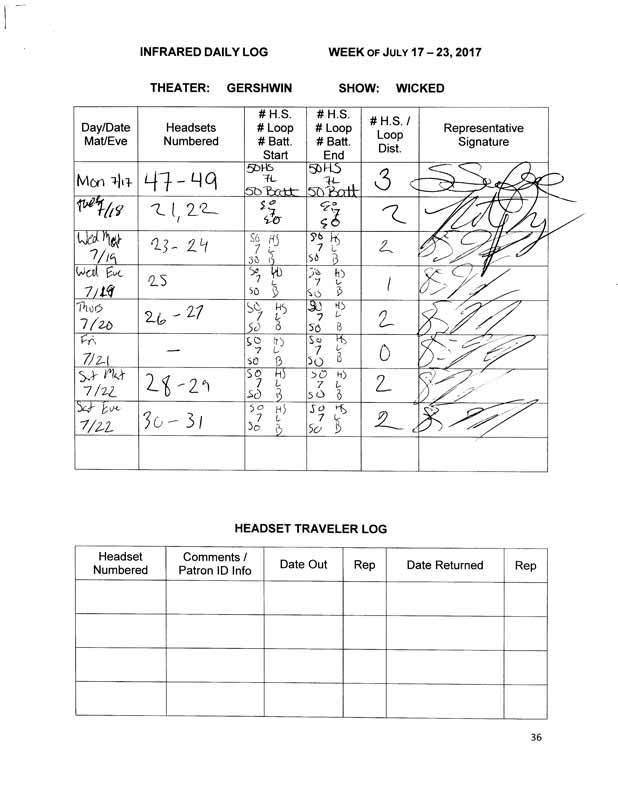 INFRARED DAILY LOG WEEK OF JULY 17 – 23, 2017
THEATER: GERSHWIN SHOW: WICKED
Day/Date
Mat/Eve
Headsets
Numbered
# H.S.
# Loop
# Batt.
Start
# H.S.
# Loop
# Batt.
End
# H.S. /
Loop
Dist.
Representative
Signature
Mon 7/17
47 - 49
50HS
7L
50 Batt
50HS
7L
50 Batt
3
Tues
7/18
21, 22
50
7
50
50
7
50
2
Wed Mat
7/19
23 - 24
50 HS
7 L
50 B
50 HS
7 L
50 B
2
Wed Eve
7/19
25
50 HS
7 L
50 B
50 HS
7 L
50 B
1
Thurs
7/20
26 - 27
50 HS
7 L
50 B
50 HS
7 L
50 B
2
Fri
7/21
—
50 HS
7 L
50 B
50 HS
7 L
50 B
0
Sat Mat
7/22
28 - 29
50 HS
7 L
50 B
50 HS
7 L
50 B
2
Sat Eve
7/22
30 - 31
50 HS
7 L
50 B
50 HS
7 L
50 B
2
HEADSET TRAVELER LOG
Headset
Numbered
Comments /
Patron ID Info
Date Out
Rep
Date Returned
Rep
36